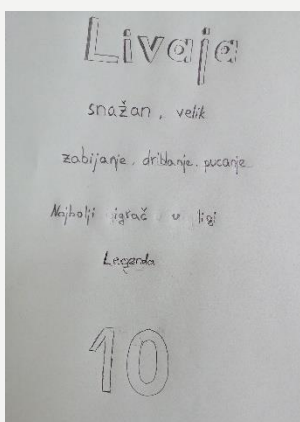 Livaja
snažan, velik
zabijanje, driblanje, pucanje
Najbolji igrač u ligi
Legenda
10